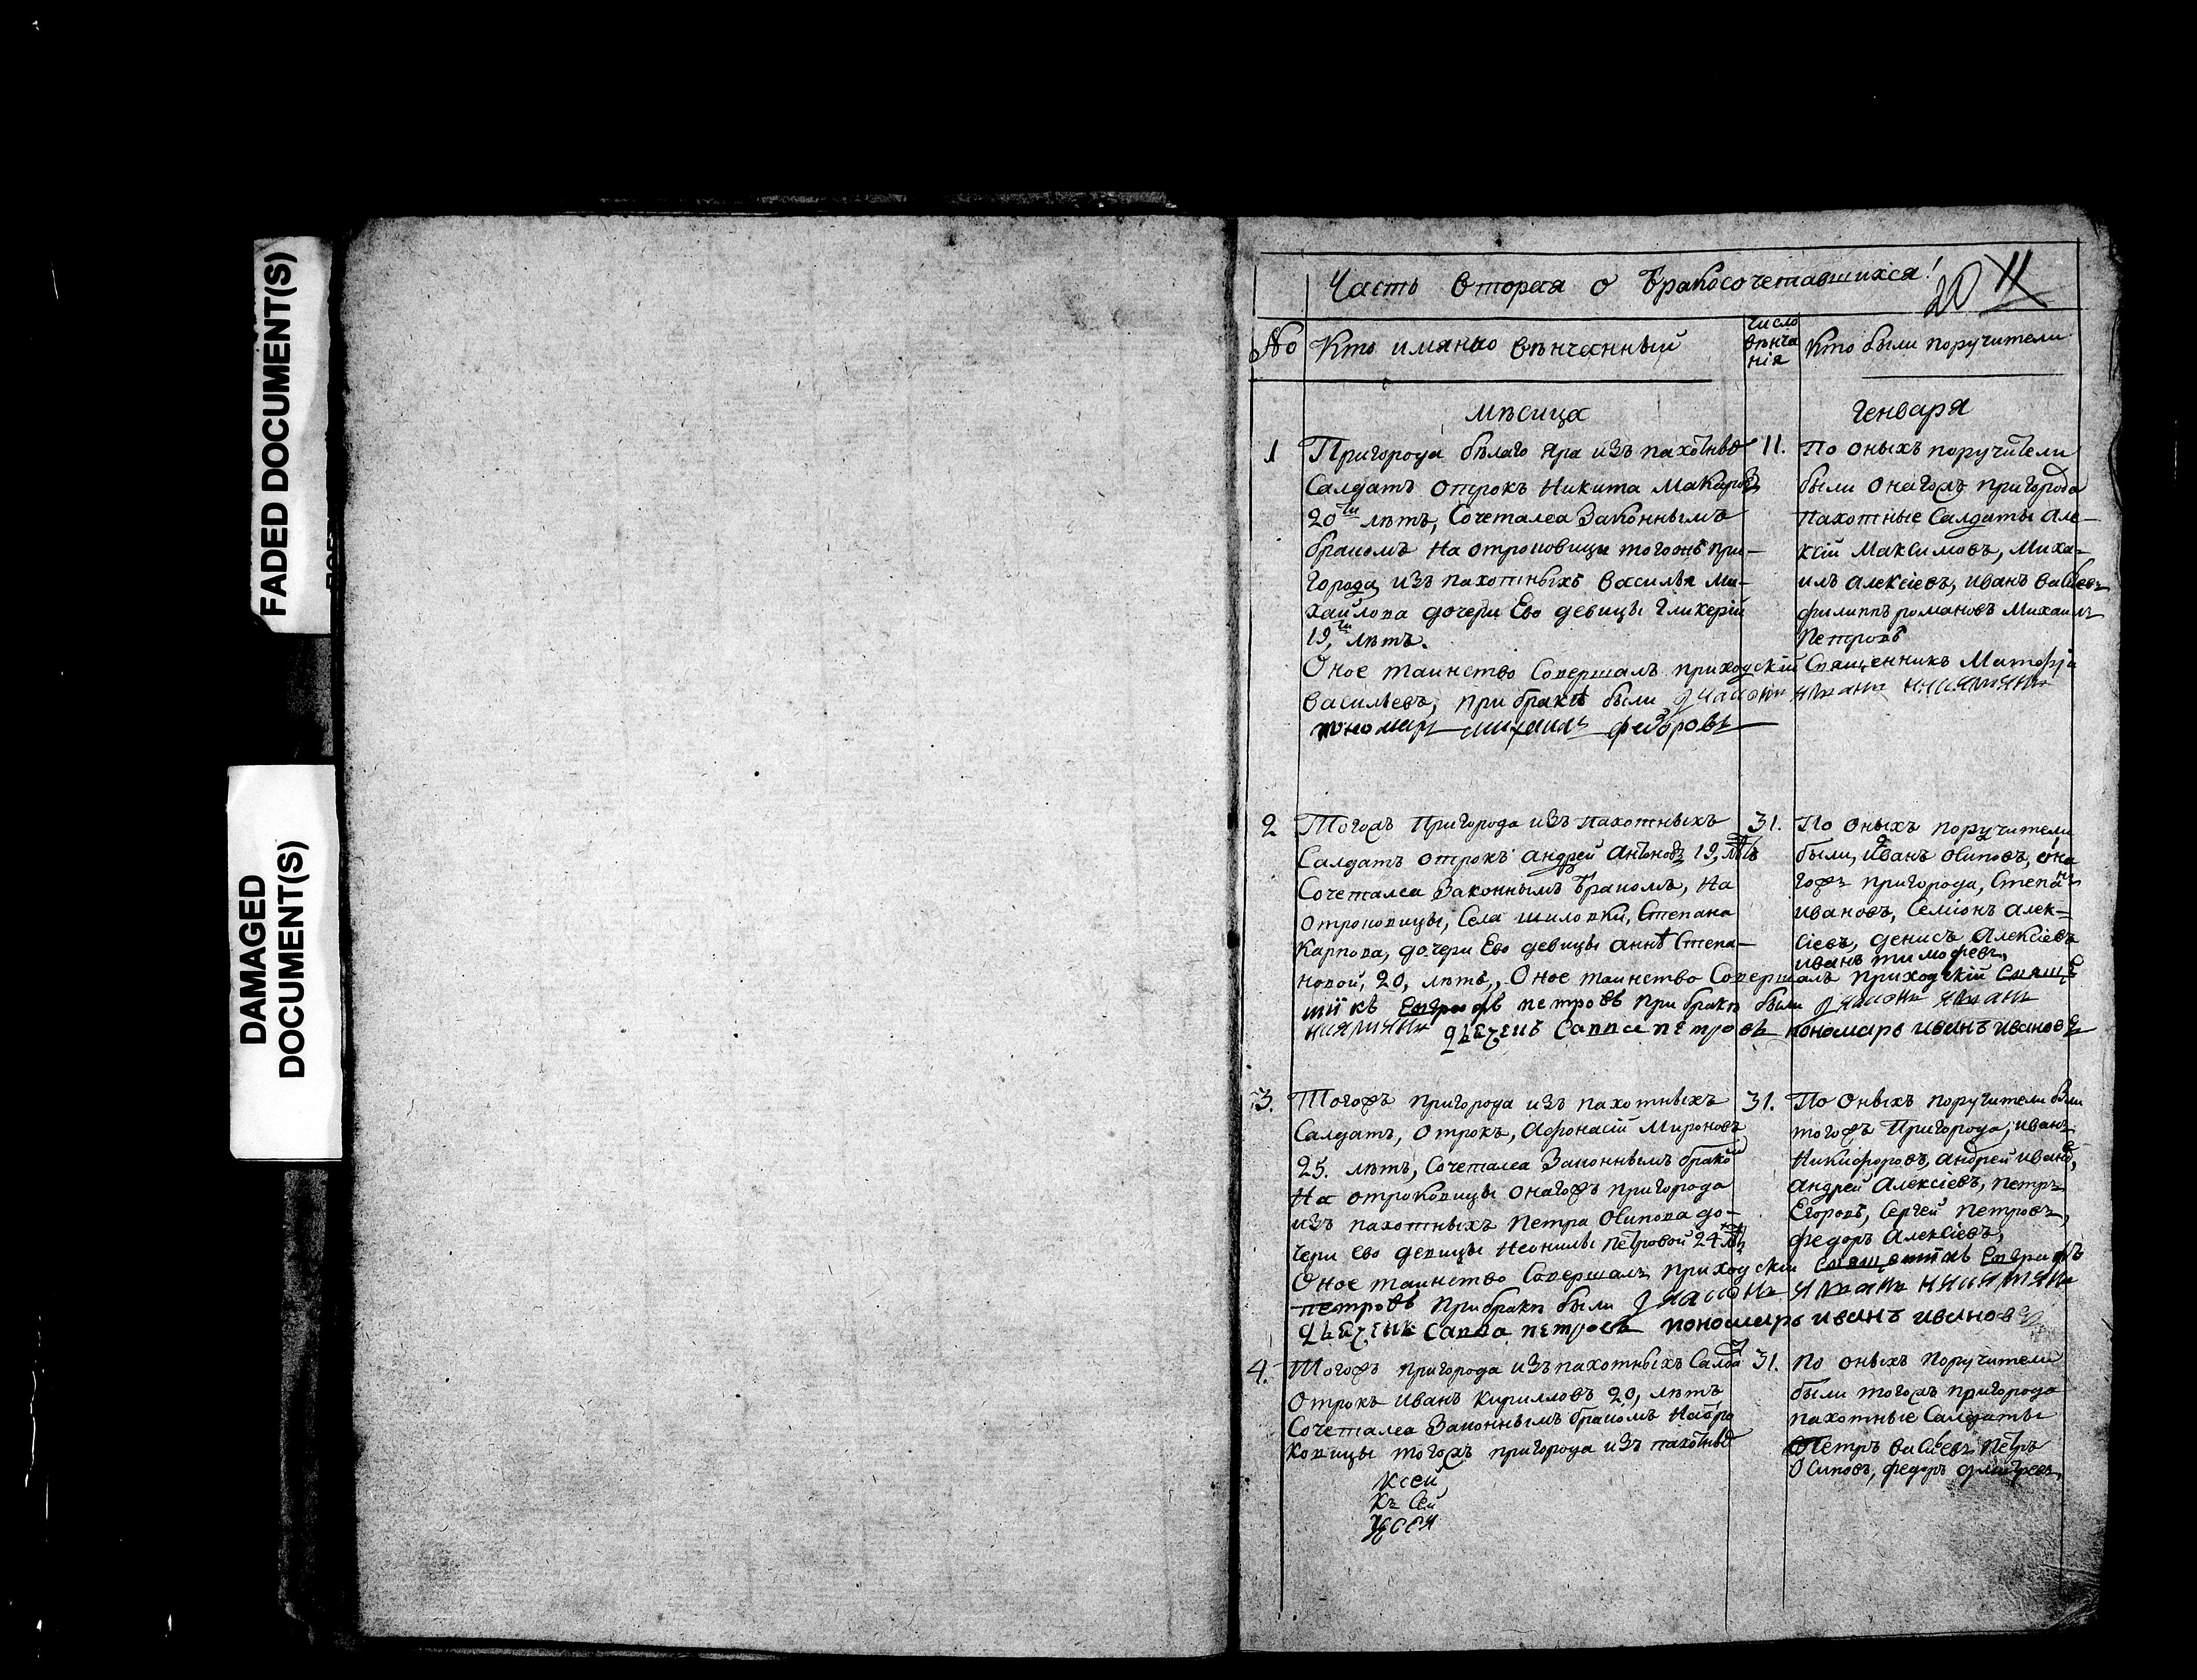 FADED DOCUMENT(S)
DAMAGED
DOCUMENT(S)
Часть вторая о бракосочетавшихся!
20 11
№ Кто имянно вѣнчанный
число
вѣнча
нія
Кто были поручители
мѣсица Генваря
1 Пригорода бѣлаго Яра изъ пахотныхъ
Салдатъ отрокъ Никита Макаровъ
20ти лѣтъ, Сочеталса Законнымъ
бракомъ на отроковицы тогожъ при-
города, изъ пахотныхъ Василья Ми-
хайлова дочери Ево девицы Гликеріи
19,ти лѣтъ.
11. По оныхъ поручители
были онагожъ пригорода
пахотные Салдаты Але-
ксій Максимовъ, Миха-
илъ Алексіевъ, Иванъ
филиппъ романовъ Михаилъ
Петровъ
Оное таинство Совершалъ приходскій Священникъ
Васильевъ, при бракѣ были
пономарь михаилъ федоровъ
2 Тогожъ Пригорода изъ пахотныхъ
Салдатъ отрокъ андрей Антоновъ 19, лѣтъ
Сочеталса Законнымъ бракомъ, на
отроковицы, Села шиловки, Степана
Карпова, дочери Ево девицы аннѣ Степа-
новой, 20, лѣтъ,
31. По оныхъ поручители
были, Иванъ Осиповъ, она
гожъ пригорода, Степанъ
Ивановъ, Семіонъ Алек-
сіевъ, денисъ Алексіевъ
иванъ тимофеевъ,
Оное таинство Совершалъ приходскій
петровъ при бракѣ были
Савва петровъ пономарь иванъ ивановъ
3. Тогожъ пригорода изъ пахотныхъ
Салдатъ, отрокъ, Афонасій Мироновъ
25. лѣтъ, Сочеталса Законнымъ бракомъ
На отроковицы онагожъ пригорода
изъ пахотныхъ Петра Осипова до-
чери ево девицы Неонилы Петровой 24 лѣтъ
31. По оныхъ поручители были
тогожъ Пригорода, иванъ
Никифоровъ, андрей ивановъ,
Андрей Алексіевъ, петръ
Егоровъ, Сергей Петровъ,
федоръ Алексіевъ,
Оное таинство Совершалъ приходскій
петровъ при бракѣ были
Савва петровъ пономарь иванъ ивановъ
4. Тогожъ пригорода изъ пахотныхъ Салдатъ
Отрокъ Иванъ Кирилловъ 20, лѣтъ
Сочеталса Законнымъ бракомъ На отро
ковицы тогожъ пригорода изъ пахотныхъ
31. По оныхъ Поручители
были тогожъ пригорода
пахотные Салдаты
Петръ Петръ
Осиповъ, федоръ
ксей
Къ Сей